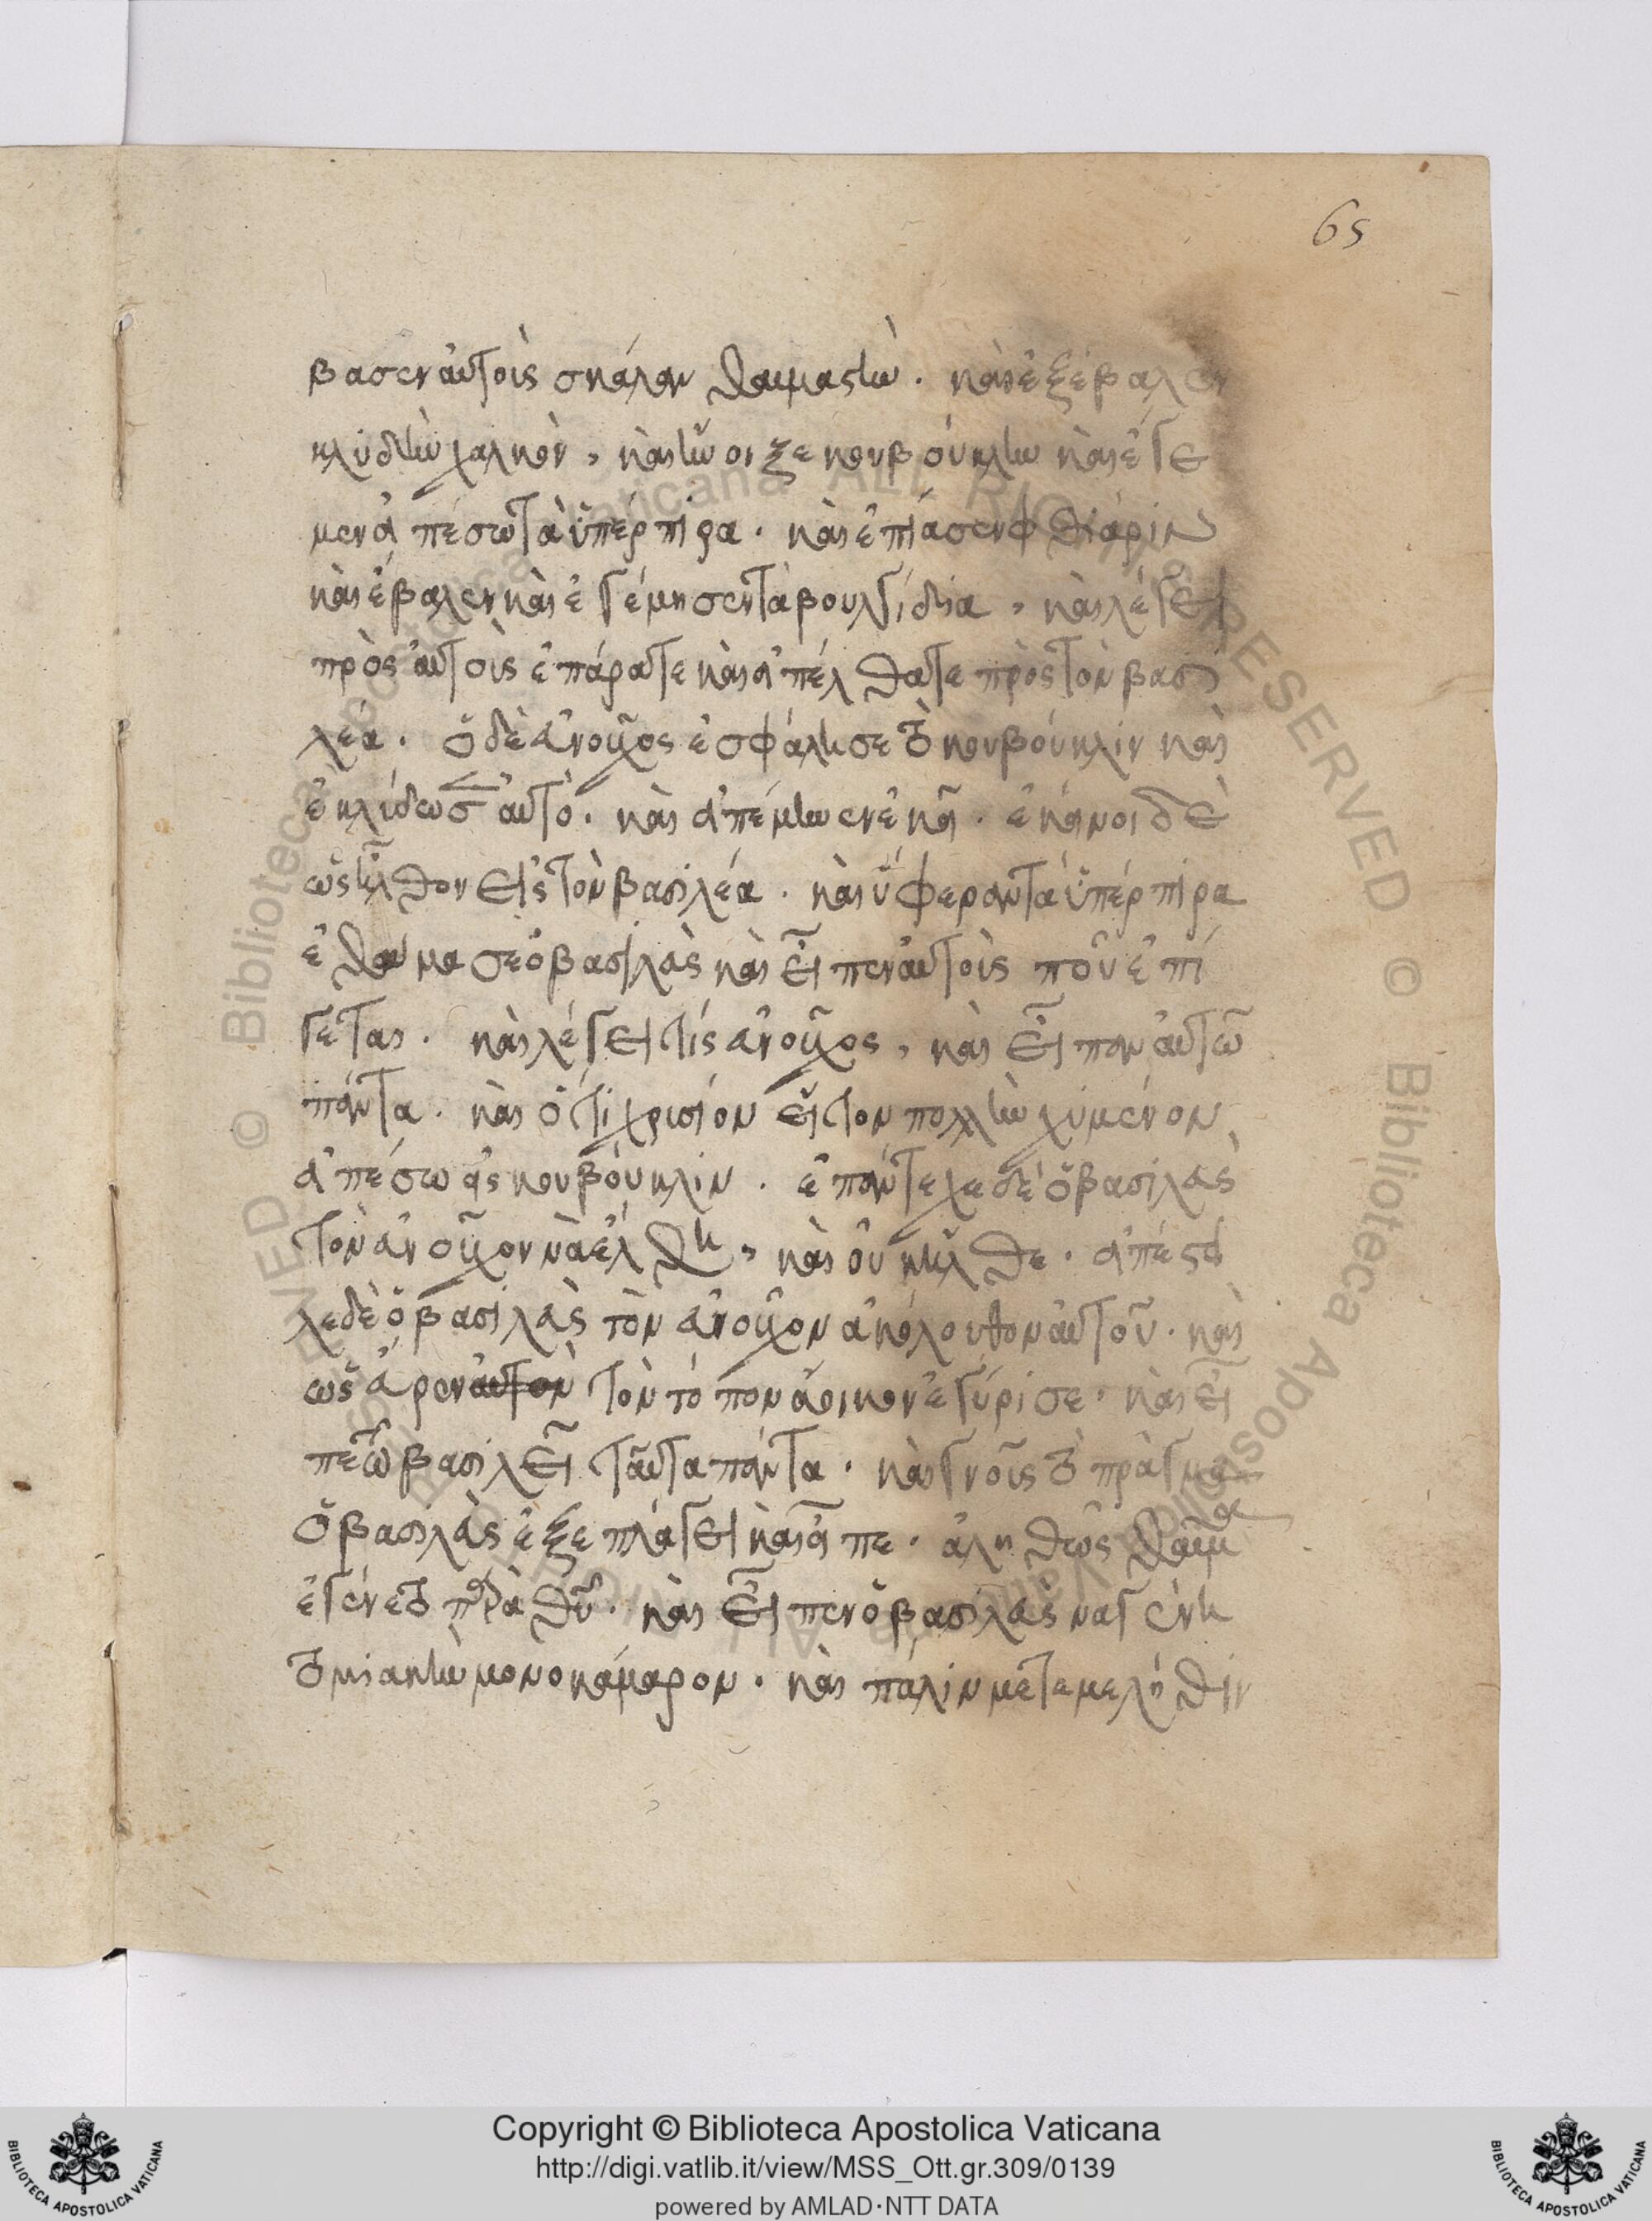 65
βασεν αὐτοὶς σκάλαν θαυμαστὼ. καὶ ἐξέβαλεν
κλυδὴν χαλκὸν, καὶ ἤνοιξε κουβούκλην καὶ ἔγε
μεν ἀπέσω τὰ ὑπέρπιρα. καὶ ἐπίασεν φθιάριν
καὶ ἔβαλεν καὶ ἐγέμησεν τὰ βουλγίδια, καὶ λέγει
πρὸς αὐτοὶς ἐπάρατε καὶ ἀπέλθατε πρὸς τὸν βασι
λέα. ὁ δὲ ἄνοιχος ἐσφάλησε τὸ κουβούκλιν καὶ
ἐκλίδωσ αὐτὸ. καὶ ἀπέμεινεν ἐκεῖ. ἐκείνοι δὲ
ὡς ἦλθον εἰς τὸν βασιλέα. καὶ ὕφεραν τὰ ὑπέρπιρα
ἐθαύμασε ὁ βασιλὰς καὶ εἶπεν αὐτοὶς ποῦ ἐπί
γεται. καὶ λέγει τίς ἄνοιχος, καὶ εἶπαν αὐτῶ
πάντα. καὶ ὅτι χρισίον εἴστον πολλὴν χυμένον
ἀπέσω εἰς κουβούκλιν. ἐπάντεχε δὲ ὁ βασιλὰς
τὸν ἄνοιχον νὰ ἔλθη, καὶ οὐκ ἦλθε. ἀπέστει
λε δὲ ὁ βασιλὰς τὸν ἄνοιχον ἀκόλουθον αὐτοῦ. καὶ
ὡς εὗρεν αὐτὸν τὸν τόπον ἄοικον ἐγύρισε. καὶ εἶ
πε τῶ βασιλεῖ ταῦτα πάντα. καὶ γνοῖς τὸ πρὰγμα
ὁ βασιλὰς ἐξεπλάγει καὶ εἶπε. ἀληθῶς θαῦμα
ἐγένετο πρὰ θυ. καὶ εἶπεν ὁ βασιλὰς να γένη
τὸ μιακὴν μονοκάμαρον. καὶ πάλιν μετεμελήθιν
Copyright © Biblioteca Apostolica Vaticana
http://digi.vatlib.it/view/MSS_Ott.gr.309/0139
powered by AMLAD·NTT DATA